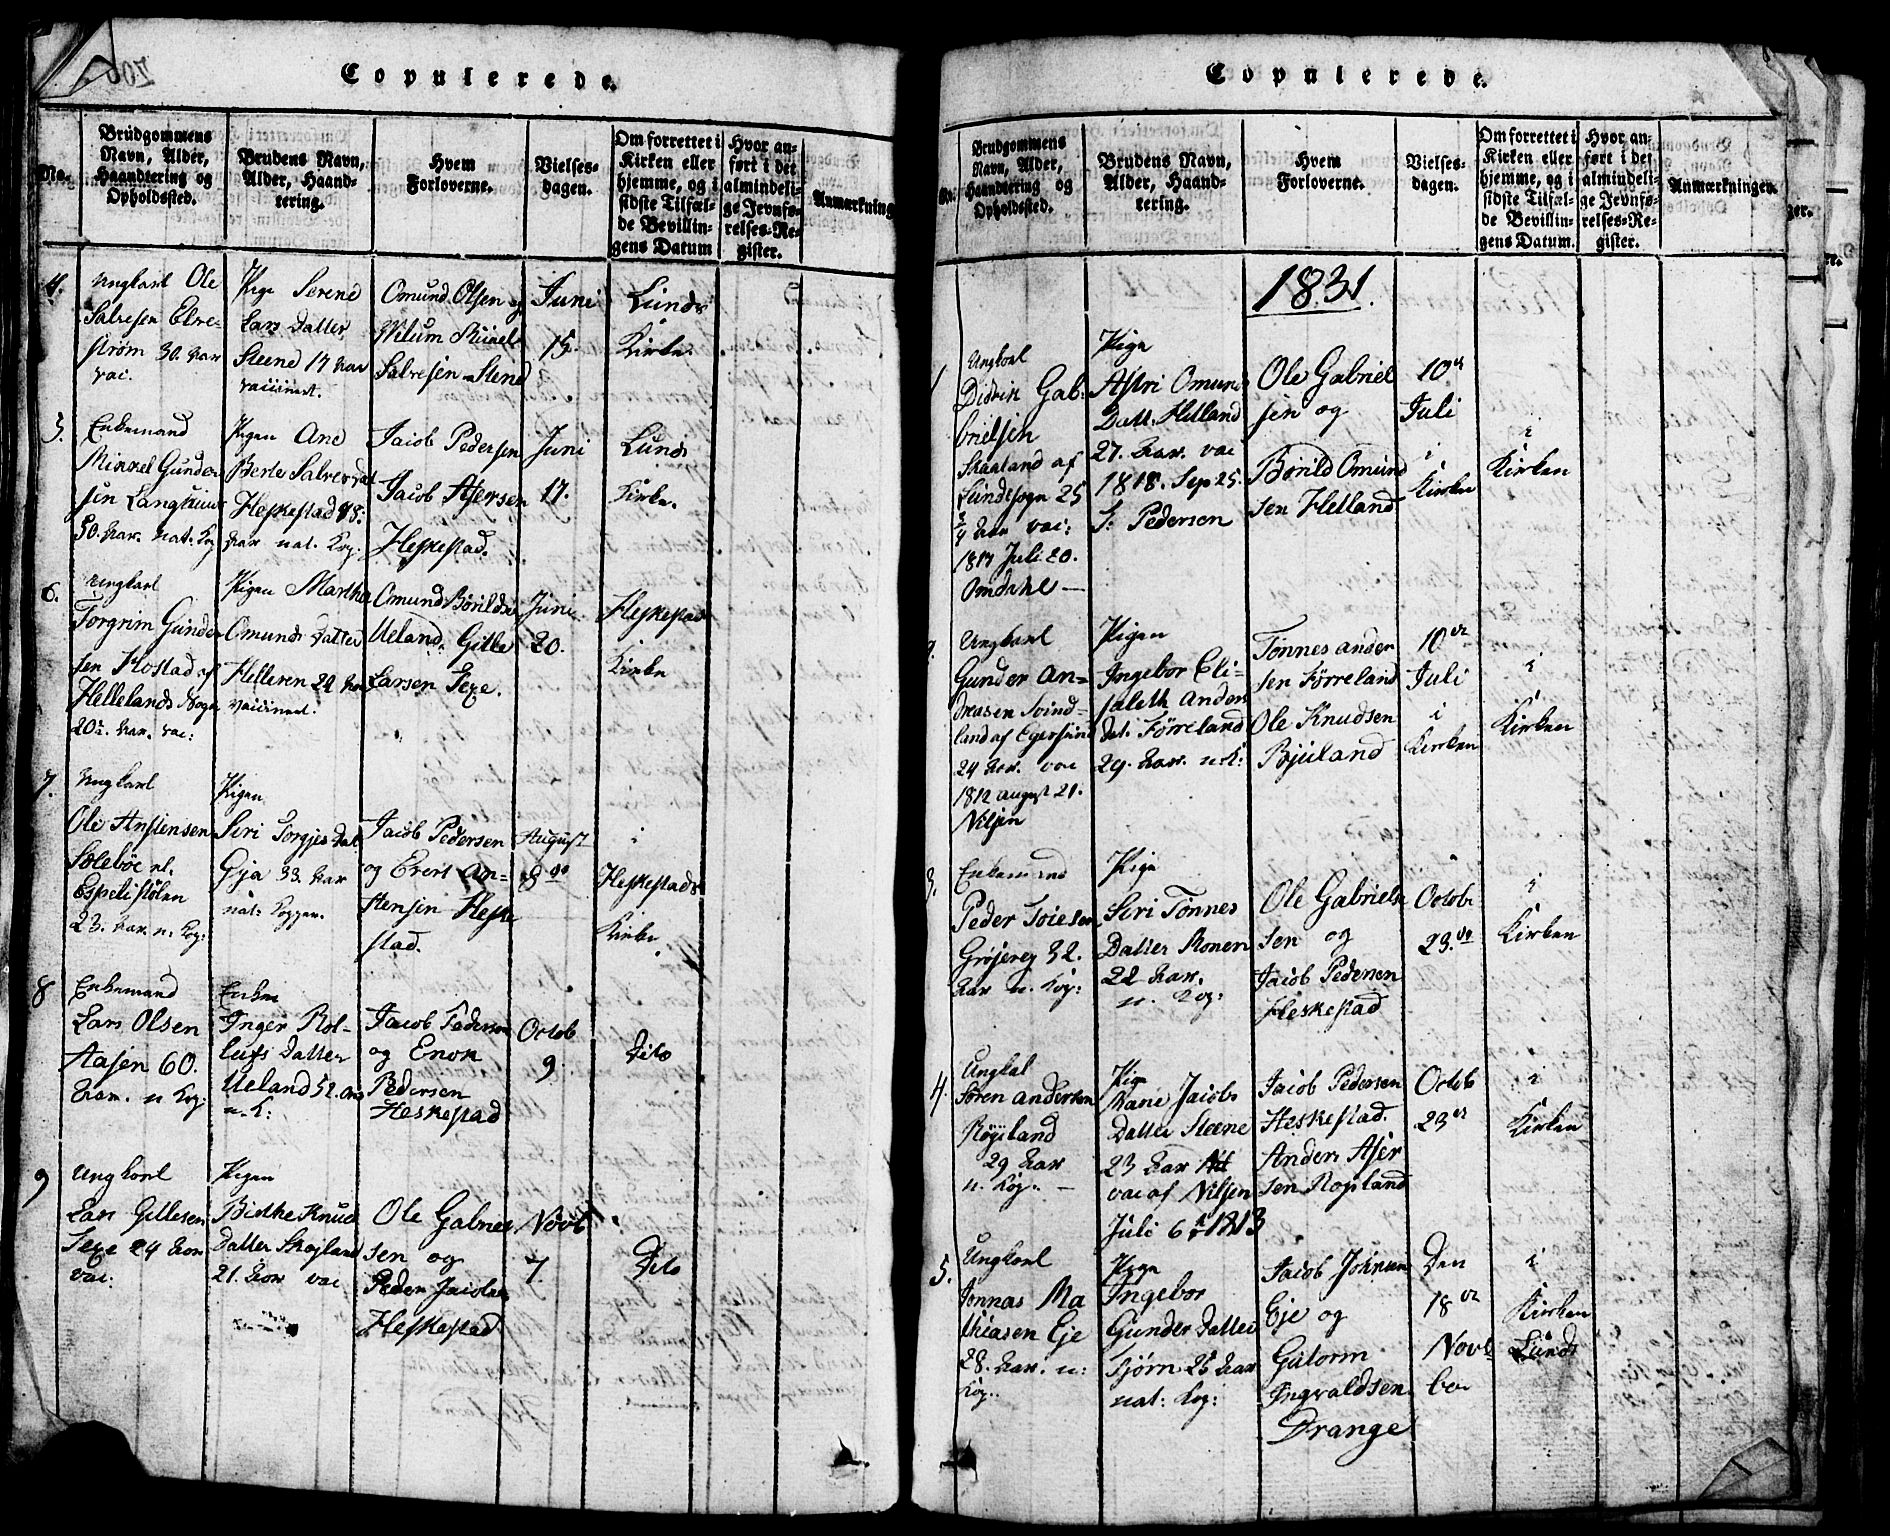 Copulerede.
No.
Brudgommens Navn, Alder, Haandtering og Opholdssted.
Brudens Navn, Alder, Haandtering.
Hvem Forloverne.
Vielses-dagen.
Om forrettet i Kirken eller hjemme, og i sidste Tilfælde Bevillingens Datum
Hvor anført i det almindelige Jevnførelses-Register.
Anmærkning
4.
Ungkarl Ole
Salvesen Elve-
strøm 30. Aar
vac.
Pige Serene
Lars Datter
Steene 17 Aar
vaccineret.
Omund Olsen og
Salvesen Steene
Juni
15.
Lunds
Kirke.
5.
Enkemand
Mikkel Gunder
sen
50. Aar. nat. Kop
Pigen Ane
Berte Salvesdat
Heskestad 48.
Aar nat. Kop:
Jacob Pedersen
Jacob Asersen
Heskestad.
Juni
17.
Lunds
Kirke.
6.
Ungkarl
Torgrim Gunder
sen Kostad af
Hellelands Sogn
20. Aar. vac:
Pigen Martha
Omunds Datter
Helleren 24 Aar
vaccineret.
Omund Børildsen
Ueland. Gitle
Larsen Sexe.
Juni
20.
Heskestad
Kirke
7.
Ungkarl
Ole Anstensen
Solebøe
Espetistølen
23. Aar. n. Kop:
Pigen
Siri Torgjes Dat
Gya 33. Aar
nat: Kopper.
Jacob Pedersen
og Evert An-
stensen Heske
stad.
August
8de
i
Heskestads
Kirke
8
Enkemand
Lars Olsen
Aasen 60.
Aar. n Kop:
Enken
Inger Rol-
lufs Datter
Ueland 52. Aar
n. K:
Jacob Pedersen
og Enok
Pedersen
Heskestad
Octob
9.
Dito
9
Ungkarl
Lars Gitlesen
Sexe 24 Aar
vac:
Pigen
Birthe Knud
Datter Skogland
21. Aar vac
Ole Gabriel
sen og
Peder Jacobsen
Heskestad
Novb
7.
Dito
Copulerede.
No.
Brudgommens Navn, Alder, Haandtering og Opholdssted.
Brudens Navn, Alder, Haandtering.
Hvem Forloverne.
Vielses-dagen.
Om forrettet i Kirken eller hjemme, og i sidste Tilfælde Bevillingens Datum.
Hvor anført i det almindelige Jevnførelses-Register.
Anmærkninger.
1831.
1
Ungkarl
Didrik Gab-
brielsen
Skaaland af
Lunde sogn 25
3/4 Aar vac:
1817 Juli 20.
Omdahl —
Pige
Astri Omunds
Datt. Helland
27. Aar. vac
1818. Sep 25.
S: Pedersen
Ole Gabriel
sen og
Børild Omund
sen Helland
10de
Juli
i
Kirken
i
Kirken
2.
Ungkarl
Gunder An-
dreasen Svind-
land af Egersund
24 Aar. vac
1812 august 21.
Nilsen
Pigen
Ingebor Eli-
sabeth Anders
dat. Førreland
29. Aar. n. K:
Tønnes ander
sen Førreland
Ole Knudsen
Bjuland
10de
Juli
i
Kirken
i
Kirken
3.
Enkemand
Peder Toresen
Grøsvey 32.
Aar n. Kop:
Pige
Siri Tønnes
Datter Monen
22 Aar.
n. Kop:
Ole Gabriel
sen og
Jacob Pedersen
Heskestad
Octobr
23.de
i
Kirken
4.
Ungkal
Søren andersen
Røysland
29 Aar
n. Kop. —
Pige
Mari Jacobs
Datter Steene
23 Aar
vac af Nilsen
Juli 6 1813
Jacob Pedersen
Heskestad.
Anders Aser
sen Rogland
Octob
23de
i
Kirken
5.
Ungkarl
Jonnas Ma
thiasen Eje
28. Aar. n:
Kop:
Pige
Ingebor
Gunder Datter
Tjørn 25 Aar
nat: Kop:
Jacob Johnsen
Eje og
Gutorm
Ingvaldsen
Drange
Den
18de
Novb
ber
i
Kirken
Lunds